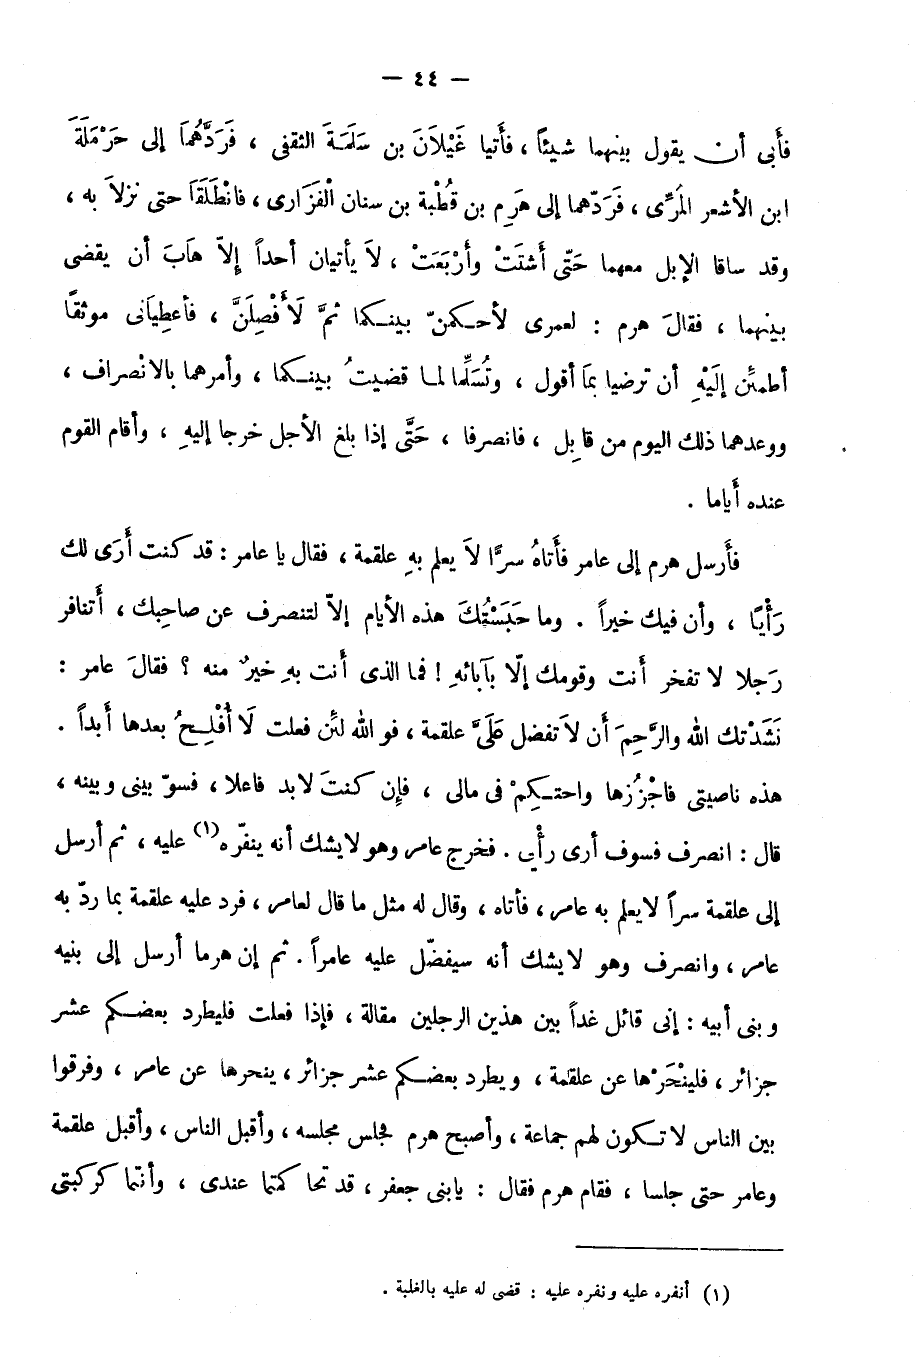 — ٤٤ —
فأبى أن يقول بينهما شيئاً ، فأَتيا غَيْلاَنَ بن سَلَمَةَ الثقفى ، فَرَدَّهُمَا إلى حَرْمَلَةَ
ابن الأشعر المُرِّى ، فَرَدّهما إلى هَرِمِ بن قُطْبة بن سنان الْفَزَارى ، فانْطَلَقَا حتى نزلاَ به ،
وقد ساقا الإبل معهما حَتّى أَشتَتْ وأَرْبَعَتْ ، لاَ يأتيان أحداً إِلاّ هَابَ أن يقضى
بينهما ، فقالَ هرم : لعمرى لأحكمنّ بينكما ثمَّ لَأَفْصِلَنَّ ، فأعطِيَانى موثقًا
أطمئن إلَيْهِ أن ترضيا بمَا أقول ، وتُسَلِّما لما قضيتُ بينكما ، وأمرهما بالانْصراف ،
ووعدهما ذلك اليوم من قابِل ، فانصرفا ، حَتَّى إذا بلغ الأجل خرجا إليهِ ، وأقام القوم
عنده أَياما .
فأَرسل هرم إلى عامر فأَتاهُ سرًّا لاَ يعلم بهِ علقمة ، فقال يا عامر : قد كنت أَرَى لك
رَأْيًا ، وأن فيك خيراً . وما حَبَسْتُكَ هذه الأيام إلاّ لتنصرف عن صاحِبك ، أَتنافر
رَجلا لا تفخر أَنت وقومك إلّا بآبائهِ ! فما الذى أَنت بهِ خيرٌ منه ؟ فقالَ عامر :
نَشَدْتك الله والرَّحِمَ أَن لاَ تفضل عَلَىَّ علقمة ، فو الله لئن فعلت لَا أُفْلِحُ بعدها أَبداً .
هذه ناصيتى فاجْزُزها واحتكِمْ فى مالى ، فإن كنتَ لابد فاعلا ، فسوّ بينى وبينه ،
قال : انصرف فسوف أرى رأْيى . فخرج عامر وهو لايشك أنه ينفّره(١) عليه ، ثم أرسل
إلى علقمة سراً لايعلم به عامر ، فأتاه ، وقال له مثل ما قال لعامر ، فرد عليه علقمة بما ردّ به
عامر ، وانصرف وهو لايشك أنه سيفضّل عليه عامراً . ثم إن هرما أرسل إلى بنيه
وبنى أبيه : إنى قائل غداً بين هذين الرجلين مقالة ، فإذا فعلت فليطرد بعضكم عشر
جزائر ، فلينْحَرْها عن علقمة ، ويطرد بعضكم عشر جزائر ، ينحرها عن عامر ، وفرقوا
بين الناس لا تكون لهم جماعة ، وأصبح هرم فجلس مجلسه ، وأقبل الناس ، وأقبل علقمة
وعامر حتى جلسا ، فقام هرم فقال : يابنى جعفر ، قد تحاكمتما عندى ، وأنتما كركبتى
(١) أنفره عليه ونفره عليه : قضى له عليه بالغلبة .